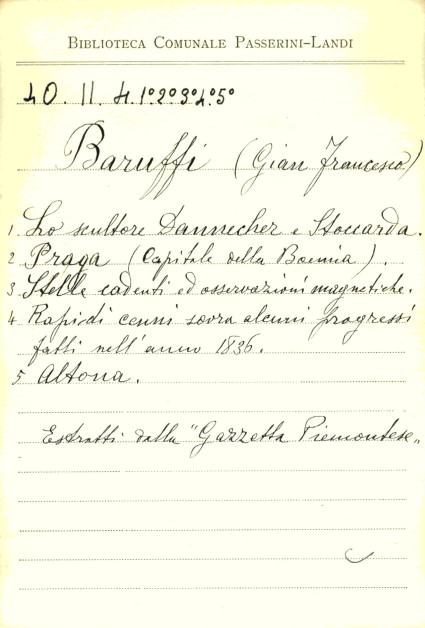 BIBLIOTECA COMUNALE PASSERINI-LANDI
40. II. 4. 1º 2º 3º 4º 5º
Baruffi (Gian Francesco)
1 Lo scultore Dannecher e Stoccarda.
2 Praga (Capitale della Boemia).
3 Stelle cadenti ed osservazioni magnetiche.
4 Rapidi cenni sovra alcuni progressi
fatti nell'anno 1836.
5 Altona.
Estratti dalla "Gazzetta Piemontese"